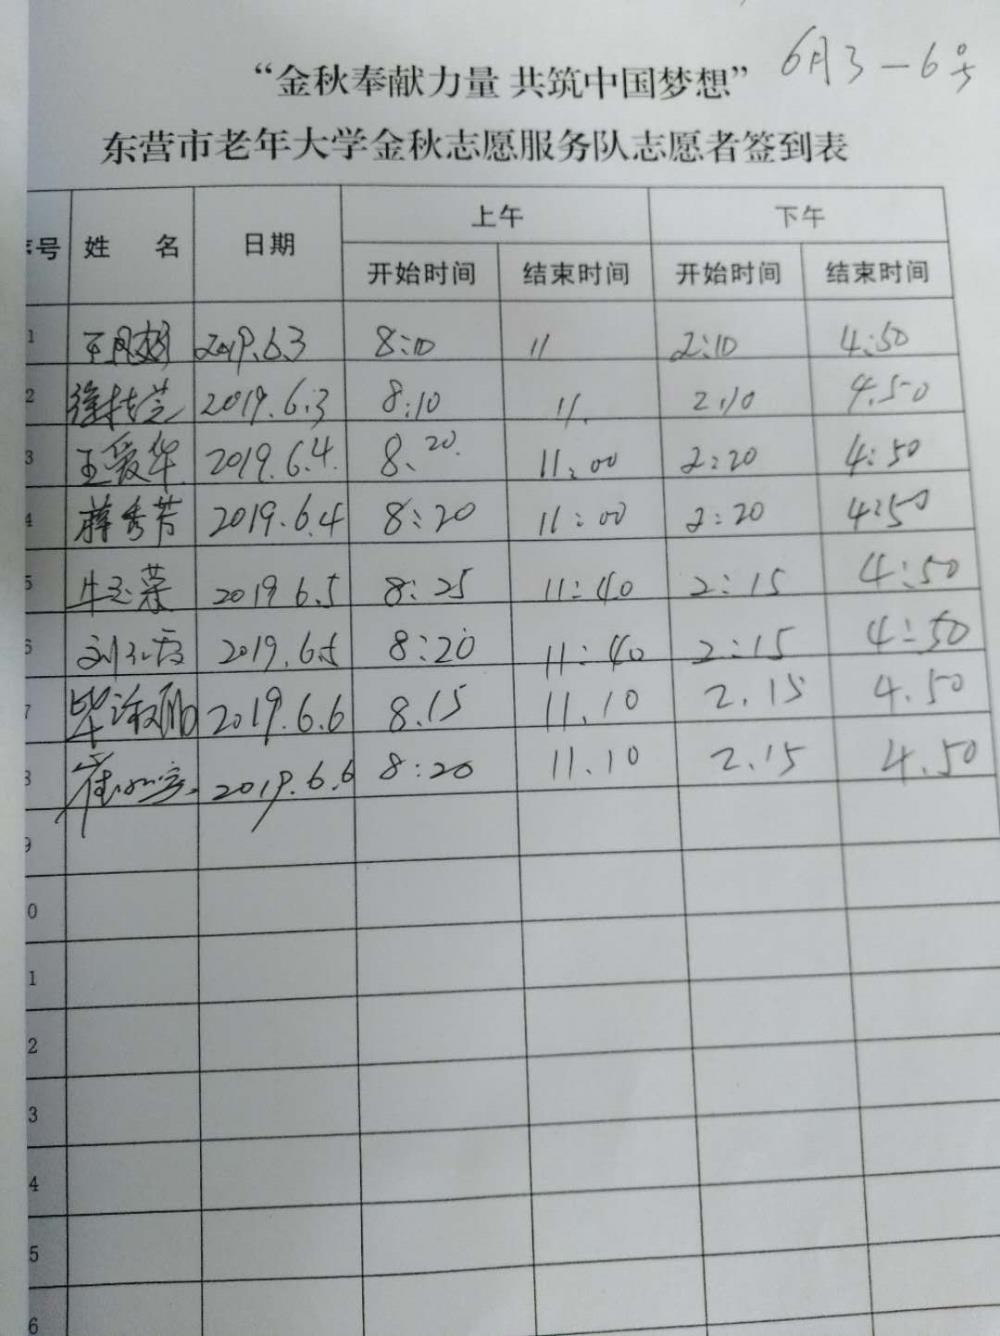 6月3-6号
“金秋奉献力量 共筑中国梦想”
东营市老年大学金秋志愿服务队志愿者签到表
序号 姓 名 日期 上午 下午
开始时间 结束时间 开始时间 结束时间
1 2019.6.3 8:10 11 2:10 4:50
2 徐桂兰 2019.6.3 8:10 11. 2.10 4.50
3 王爱华 2019.6.4. 8.20. 11:00 2:20 4:50
4 蒋秀芳 2019.6.4 8:20 11:00 2:20 4:50
5 牛玉荣 2019 6.5 8:25 11:40 2:15 4:50
6 刘红霞 2019.6.5 8:20 11:40 2:15 4:50
7 毕淑丽 2019.6.6 8.15 11.10 2.15 4.50
8 2019.6.6 8:20 11.10 2.15 4.50
9
0
1
2
3
4
5
6